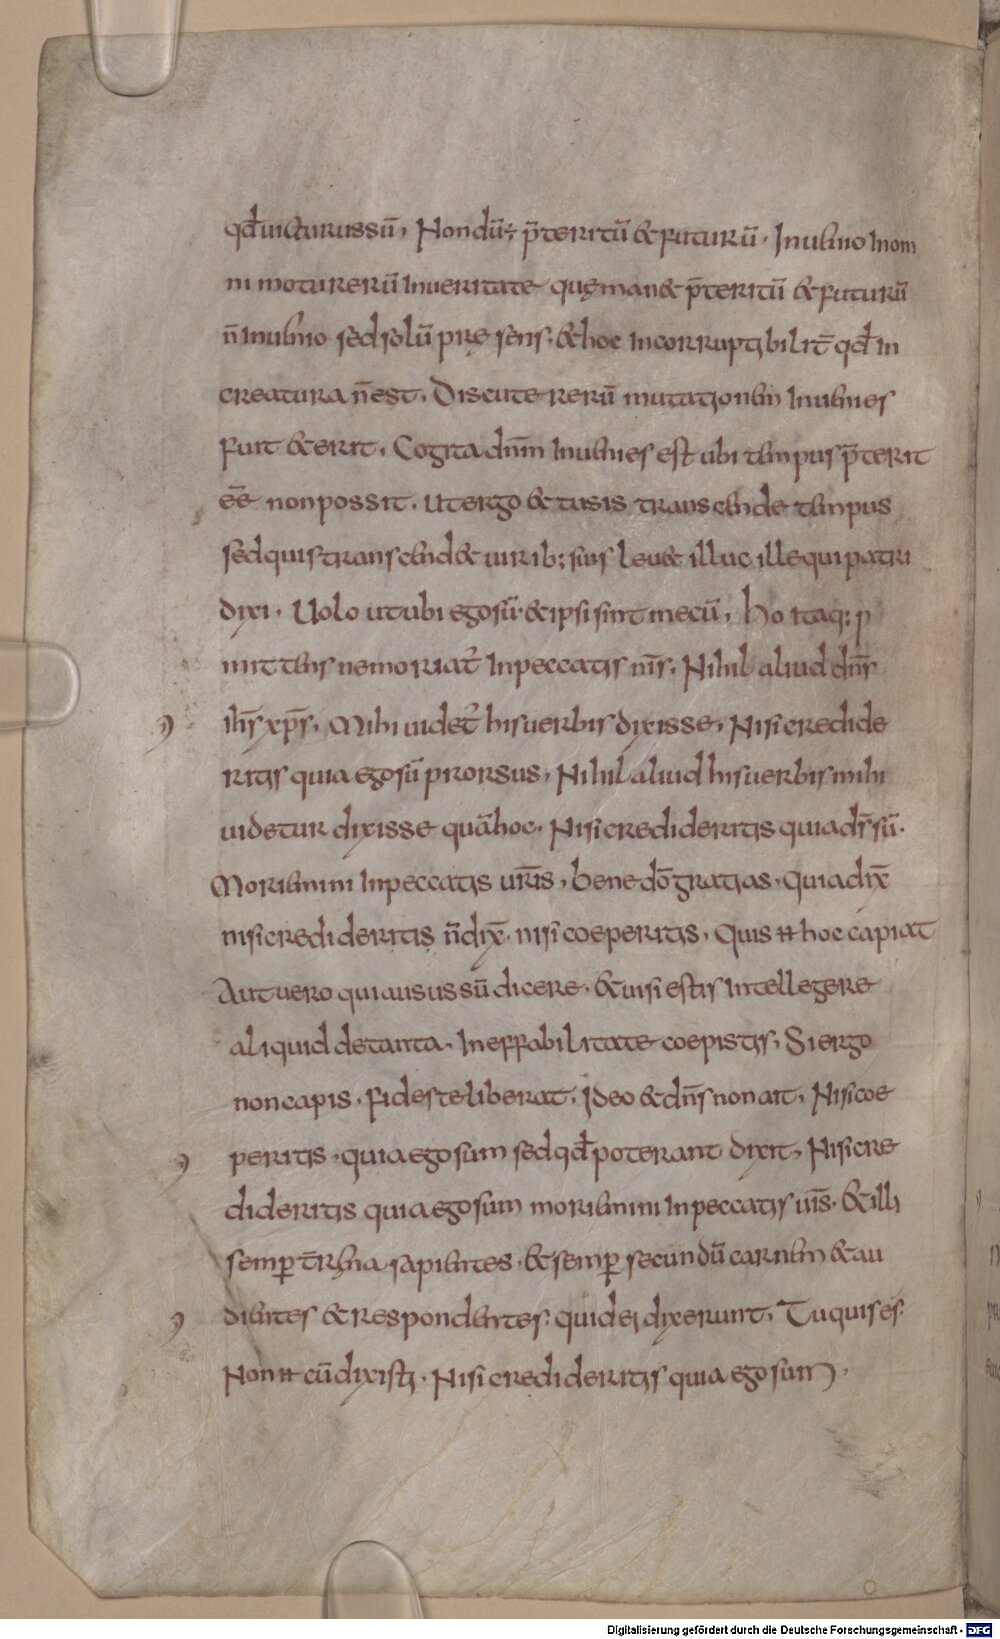 qđuicturussū, Nondū÷ p̄teritū &futurū. Inuenio Inom
ni moturerū Inueritate quęman& p̄teritū &futurū
n̄Inuenio sedsolū prę sens. &hoc Incorruptibilit̄ qđ In
creatura n̄est. Discute rerū mutationem Inuenies
fuit &erit. Cogita dn̄m Inuenies est ubi tempus p̄terit
eē̄ non possit. Utergo &tusis transcende tempus
sedquis transcend& uirib; suis leu& illuc ille qui patri
dixi. Uolo ut ubi egosū. &ipsi sint mecū, ho itaq; p
mittens nemoriat᷑ Inpeccatis nr̄is, Nihil aliud dn̄s
ih̄s xp̄s, Mihi uidet᷑ hisuerbis dixisse, Nisi credide
ritis quia egosū prorsus, Nihil aliud hisuerbis mihi
uidetur dixisse quāhoc. Nisi credideritis quia dr̄sū.
Moriemini Inpeccatis ur̄is, bene dō gratias. Quia dix̄
nisicredideritis n̄dix̄. nisi coeperitis, Quis ħ hoc capiat
Aut uero quiausus sū dicere. &uisi estis Intellegere
aliquid detanta, Ineffabilitate coepistis, Siergo
noncapis. fides teliberat. Ideo &dn̄s non ait, Nisi coe
peritis. quia ego sum sed qđ poterant dixit, Nisi cre
dideritis quia ego sum moriemini Inpeccatis ur̄is. &illi
semꝑ t̄rena sapientes. &semꝑ secundū carnem &au
dientes &respondentes. quid ei dixerunt, Tu quis es.
Non ħ cūdixisti. Nisi credideritis quia ego sum.
Digitalisierung gefördert durch die Deutsche Forschungsgemeinschaft - DFG